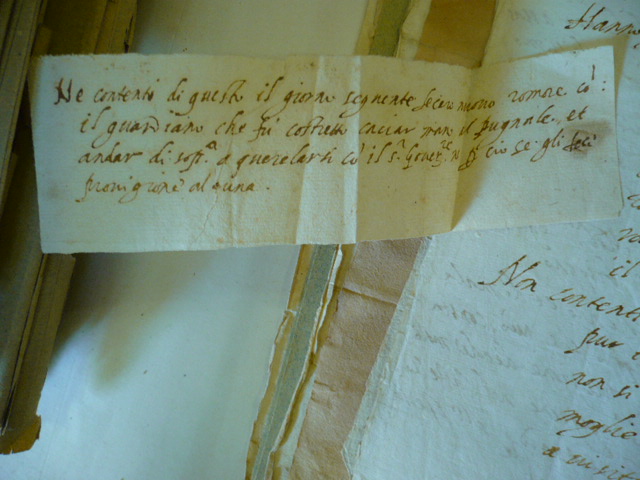 Ne contenti di questo il giorno seguente fecero nuovo romore co':
il guardiano che fu costretto cacciar man il pugnale, et
andar di sopr.ª a querelarsi co' il s.r Gover.re nè p ciò se gli fecè
provigione alcuna.
Hanno
il
Non contenti
pur
non si
moglie
a visit